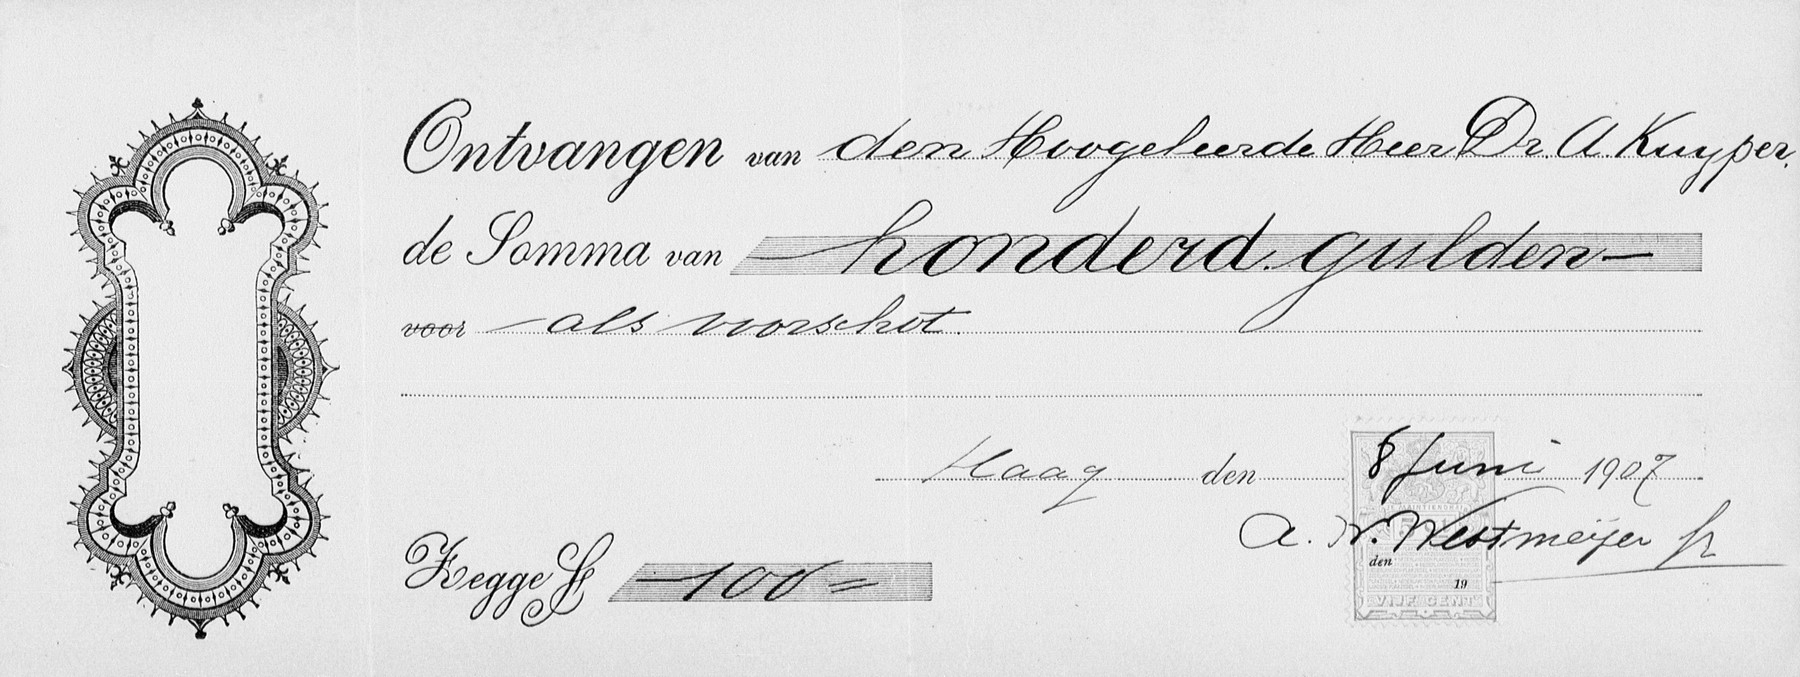 Ontvangen van den Hoogeleerde Heer Dr. A. Kuyper.
de Somma van – honderd gulden –
voor – als voorschot.
Haag den 8 Juni 1907
A. W. Westmeijer Jr
den
19
VIJF CENT
Zegge ƒ – 100 =